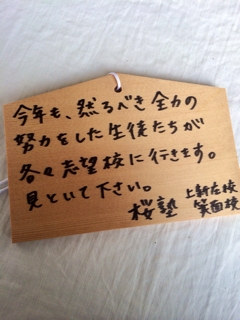 今年も、然るべき全力の
努力をした生徒たちが
各々志望校に行きます。
見といて下さい。
桜塾 上新庄校
箕面校